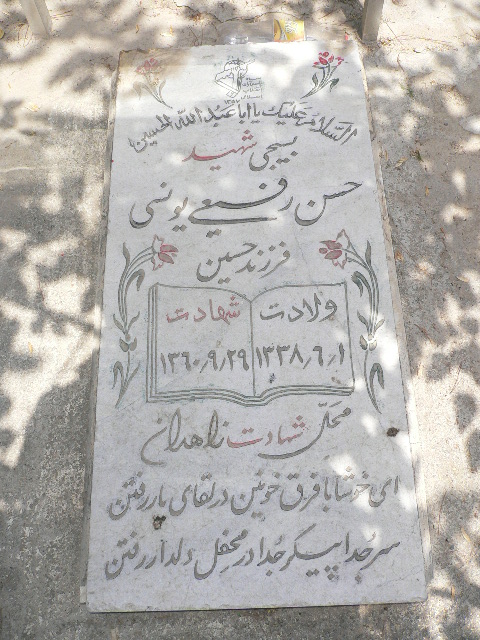 السّلام علیک یا اباعبدالله الحسین
بسیجی شهید
حسن رفیعی یونسی
فرزند حسین
ولادت شهادت
۱۳۳۸٫۶٫۱ ۱۳۶۰٫۹٫۲۹
محلّ شهادت زاهدان
ای خوشا با فرق خونین در لقای یار رفتن
سر جُدا پیکر جُدا در محفل دلدار رفتن